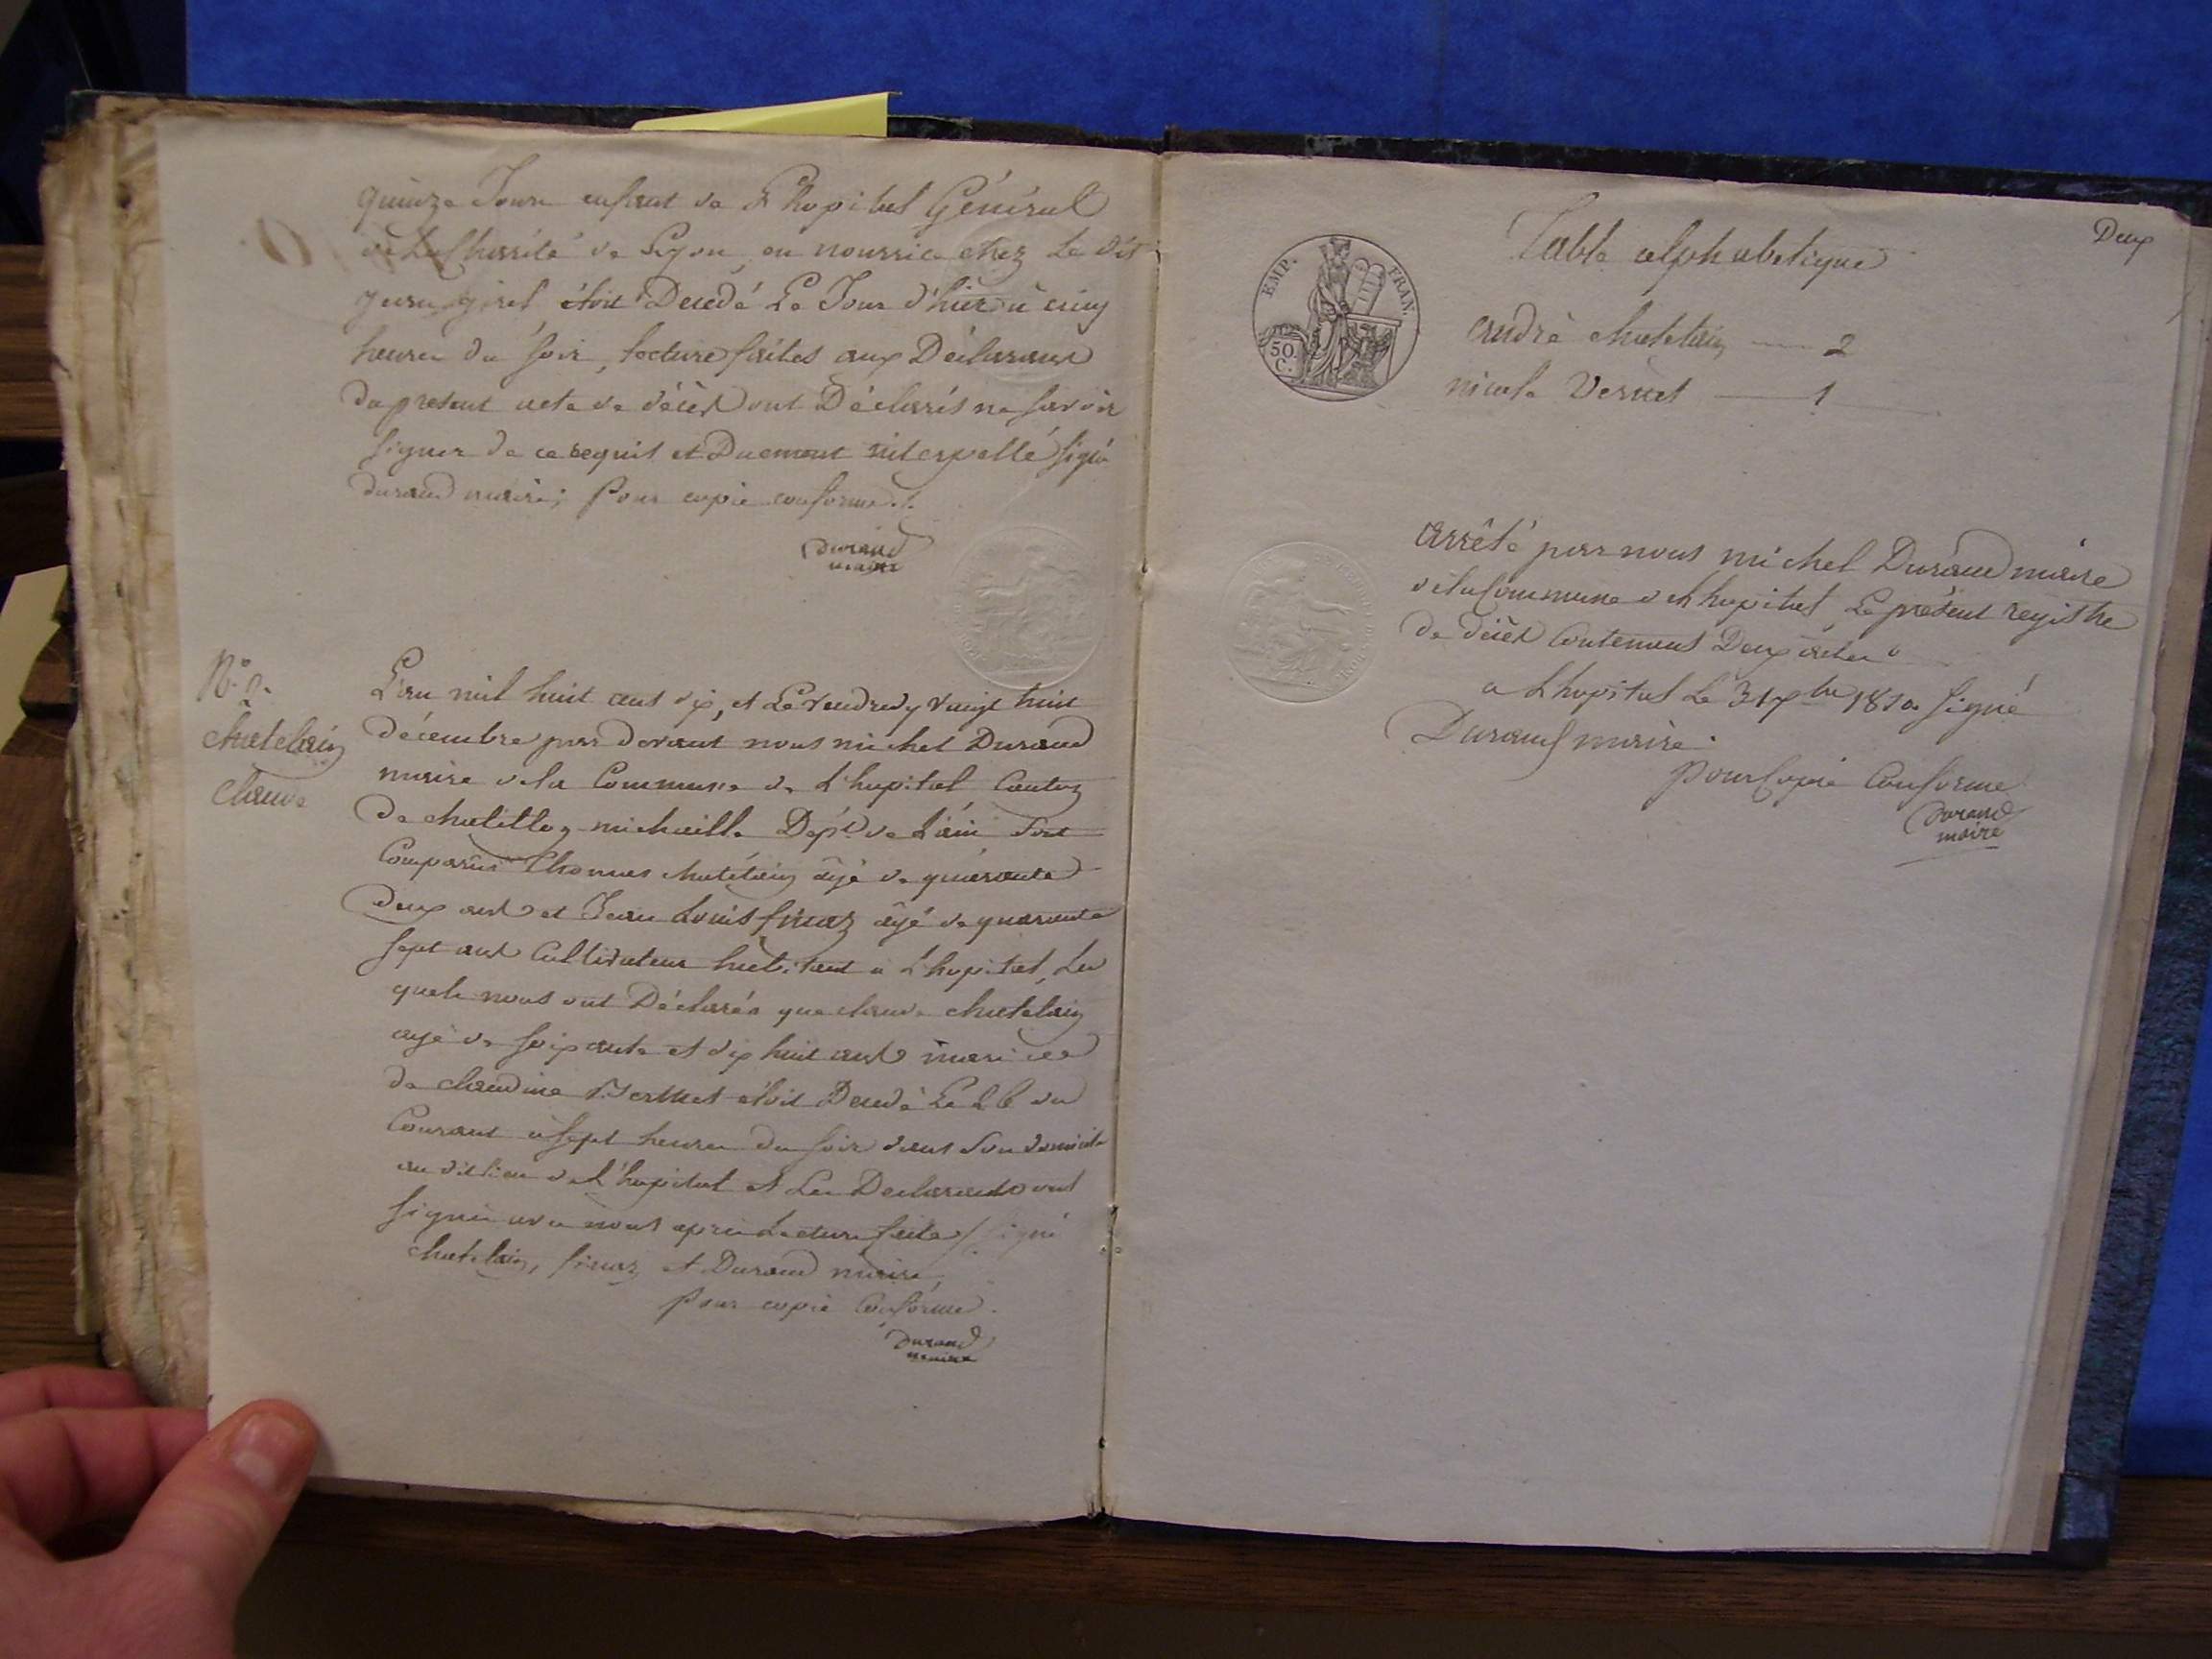 quinze Jours enfant de L'hopital Général
de La Charité de Lyon, en nourrice chez Le dit
girel étoit Decedé Le Jour d'hier à cinq
heures du soir, Lecture faites aux Déclarans
du present acte de décès ont Déclarés ne savoir
signer de ce requis et Duement interpellé signé
durand maire; Pour copie conforme ./.
Durand
maire
N.º 2.
chatelain
claude
L'an mil huit cent dix, et Le vendredy vingt huit
décembre par devant nous michel Durand
maire de la Commune de L'hopital Canton
de chatillon michaille Dépt. de L'ain Sont
Comparus Thomas chatelain âgé de quarante
Deux ans et Jean Louis finaz âgé de quarante
sept ans Cultivateurs habitant à L'hopital, Les
quels nous ont Déclarés que claude chatelain
agé de soixante et dix huit ans
de claudine étoit Decedé Le 26 du
Courant à sept heures du soir dans son domicile
au dit lieu de L'hopital et Les Declarants ont
signés avec nous après Lecture faite / signé
chatelain, finaz et Durand maire,
Pour copie Conforme.
Durand
maire
Deux
EMP. FRAN.
50.
C.
Table alphabetique
andré chatelain — 2
nicole Veruet — 1
arrêté par nous michel Durand maire
de la Commune de L'hopital, Le présent registre
de décès Contenant Deux actes
a L'hopital Le 31 xbre 1810. signé
Durand maire.
Pour Copie Conforme
Durand
maire